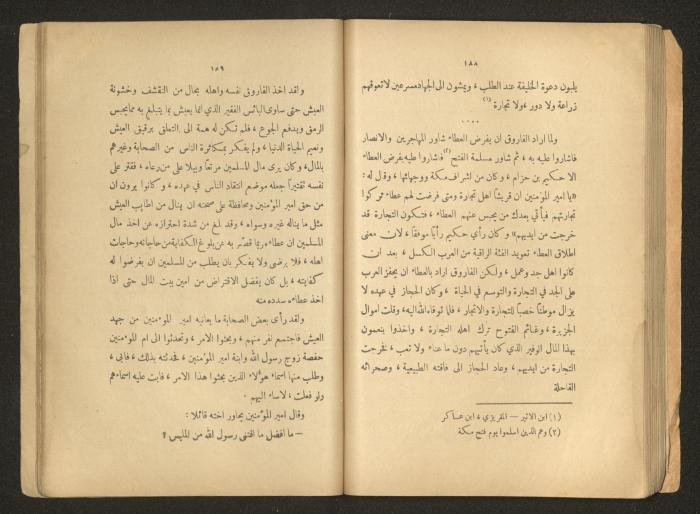 ١٨٨
يلبون دعوة الخليفة عند الطلب ، ويمشون الى الجهاد مسرعين لا تعوقهم
زراعة ولا دور ، ولا تجارة (١)
....
ولما اراد الفاروق ان يفرض العطاء شاور المهاجرين والانصار
فاشاروا عليه به ، ثم شاور مسلمة الفتح (٢) فاشاروا عليه بفرض العطاء
الا حكيم بن حزام ، وكان من اشراف مكة ووجهائها ، وقال له :
«يا امير المؤمنين ان قريشاً اهل تجارة ومتى فرضت لهم عطاء تركوا
تجارتهم فيأتي بعدك من يحبس عنهم العطاء ، فتكون التجارة قد
خرجت من ايديهم» وكان رأي حكيم رأياً موفقاً ، لان معنى
اطلاق العطاء تعويد الفئة الراقية من العرب الكسل ، بعد ان
كانوا اهل جد وعمل ، ولكن الفاروق اراد بالعطاء ان يحفز العرب
على الجد في التجارة والتوسع في الحياة ، وكان الحجاز في عهده لا
يزال موطناً خصباً للتجارة والاتجار ، فلما توفاه الله اليه ، وقلت اموال
الجزيرة ، وغنائم الفتوح ترك اهله التجارة ، واخذوا ينعمون
بهذا المال الوفير الذي كان يأتيهم دون ما عناء ولا تعب ، فخرجت
التجارة من ايديهم ، وعاد الحجاز الى فاقته الطبيعية ، وصحرائه
القاحلة
(١) ابن الاثير — المقريزي ، ابن عساكر
(٢) وهم الذين اسلموا يوم فتح مكة
١٨٩
ولقد اخذ الفاروق نفسه واهله بحال من التقشف وخشونة
العيش حتى ساوى البائس الفقير الذي انما يعيش بما يتبلغ به مما يحبس
الرمق ويدفع الجوع ، فلم تكن له همة الى التعلق برقيق العيش
ونعيم الحياة الدنيا ، ولم يفكر بمكاثرة الناس من الصحابة وغيرهم
بالمال ، وكان يرى مال المسلمين مرتعاً وبيلا على من رعاه ، فقتر على
نفسه تقتيراً جعله موضع انتقاد الناس في عهده ، وكانوا يرون ان
من حق امير المؤمنين ومحافظة على صحته ان ينال من اطايب العيش
مثل ما يناله غيره وسواه ، وقد بلغ من شدة احترازه عن اخذ مال
المسلمين ان عطاءه ربما قصّر به عن بلوغ الكفاية من حاجاته وحاجات
اهله ، فلا يرضى ولا يفكر بان يطلب من المسلمين ان يفرضوا له
كفايته ، بل كان يفضل الاقتراض من امين بيت المال حتى اذا
اخذ عطاءه سدده منه
ولقد رأى بعض الصحابة ما يعانيه امير المؤمنين من جهد
العيش فاجتمع نفر منهم ، وبحثوا الامر ، وتحدثوا الى ام المؤمنين
حفصة زوج رسول الله وابنة امير المؤمنين ، فحدثته بذلك ، فابى ،
وطلب منها اسماء هؤلاء الذين بحثوا هذا الامر ، فابت عليه اسماءهم
ولو فعلت ، لاساء اليهم .
وقال امير المؤمنين يحاور اخته قائلا :
— ما افضل ما اقتنى رسول الله من الملبس ؟